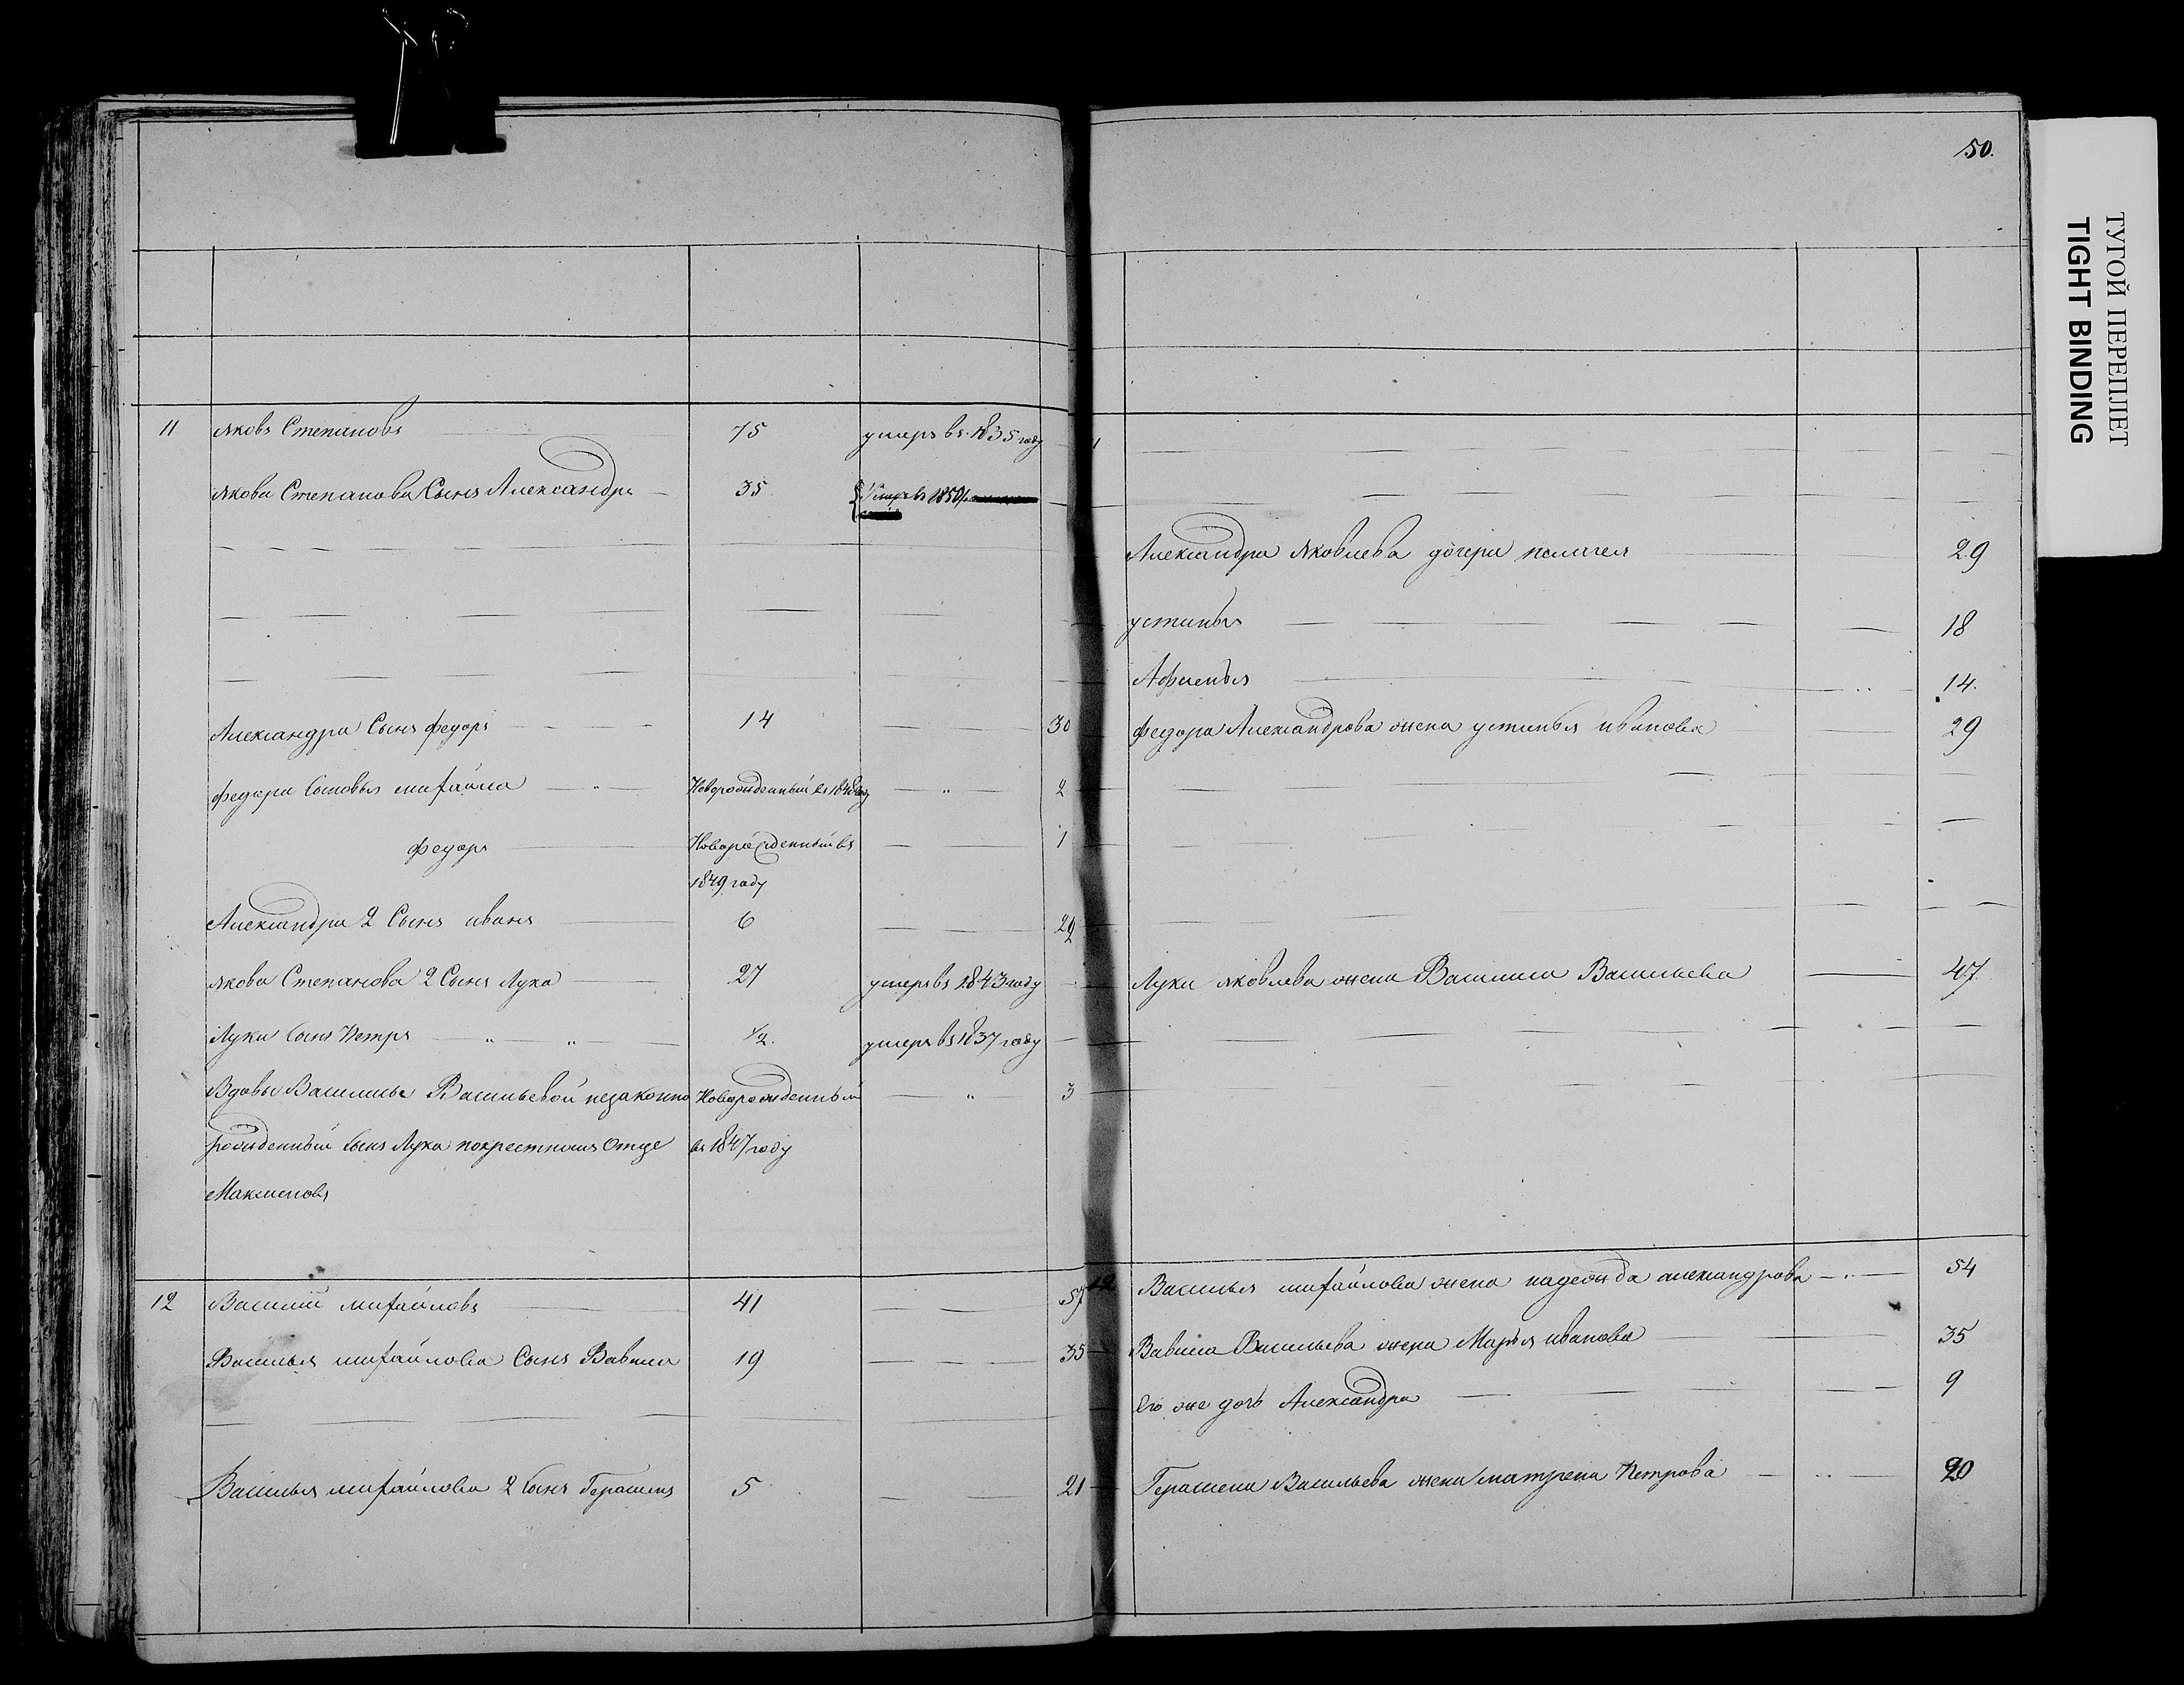 50.
ТУГОЙ ПЕРЕПЛЕТ
TIGHT BINDING
11 Яковъ Степановъ 75 умеръ въ 1835 году
Якова Степанова Сынъ Александръ 35 Умеръ въ 1850
Александра Яковлева дочери пелагея 29
устинья 18
Афимья 14.
Александра Сынъ федоръ 14 30 федора Александрова жена устинья иванова 29
федора Сыновья михайла Новорожденный въ 1848 году 2
федоръ Новорожденный въ 1
1849 году
Александра 2 Сынъ иванъ 6 22
Якова Степанова 2 Сынъ Лука 27 умеръ въ 1843 году Луки Яковлева жена Василиса Васильева 47
Луки Сынъ Петръ 1/2. умеръ въ 1837 году
Вдовы Василисы Васильевой незаконно Новорожденный 3
рожденный Сынъ Лука покрестномъ Отце въ 1847 году
Максимовъ
12 Василий михайловъ 41 57 12 Василья михайлова жена надежда александрова 54
Василья михайлова Сынъ Вавила 19 35 Вавила Васильева жена Марья иванова 35
Его же дочь Александра 9
Василья михайлова 2 Сынъ Герасимъ 5 21 Герасима Васильева жена матрена Петрова 20